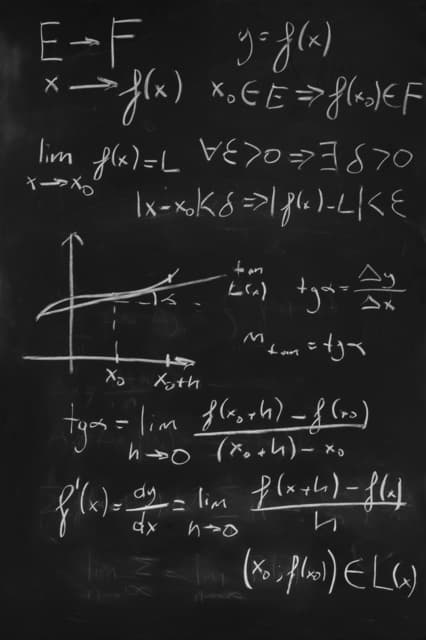 E → F
y = f(x)
x → f(x)
x₀ ∈ E ⇒ f(x₀) ∈ F
lim f(x) = L
x → x₀
∀ε > 0 ⇒ ∃ δ > 0
|x - x₀| < δ ⇒ |f(x) - L| < ε
tan
L(x)
α
x₀
x₀+h
tgα = Δy/Δx
m tan = tgα
tgα = lim h→0 (f(x₀+h) - f(x₀))/((x₀+h) - x₀)
f'(x) = dy/dx = lim h→0 (f(x+h) - f(x))/h
(x₀; f(x₀)) ∈ L(x)